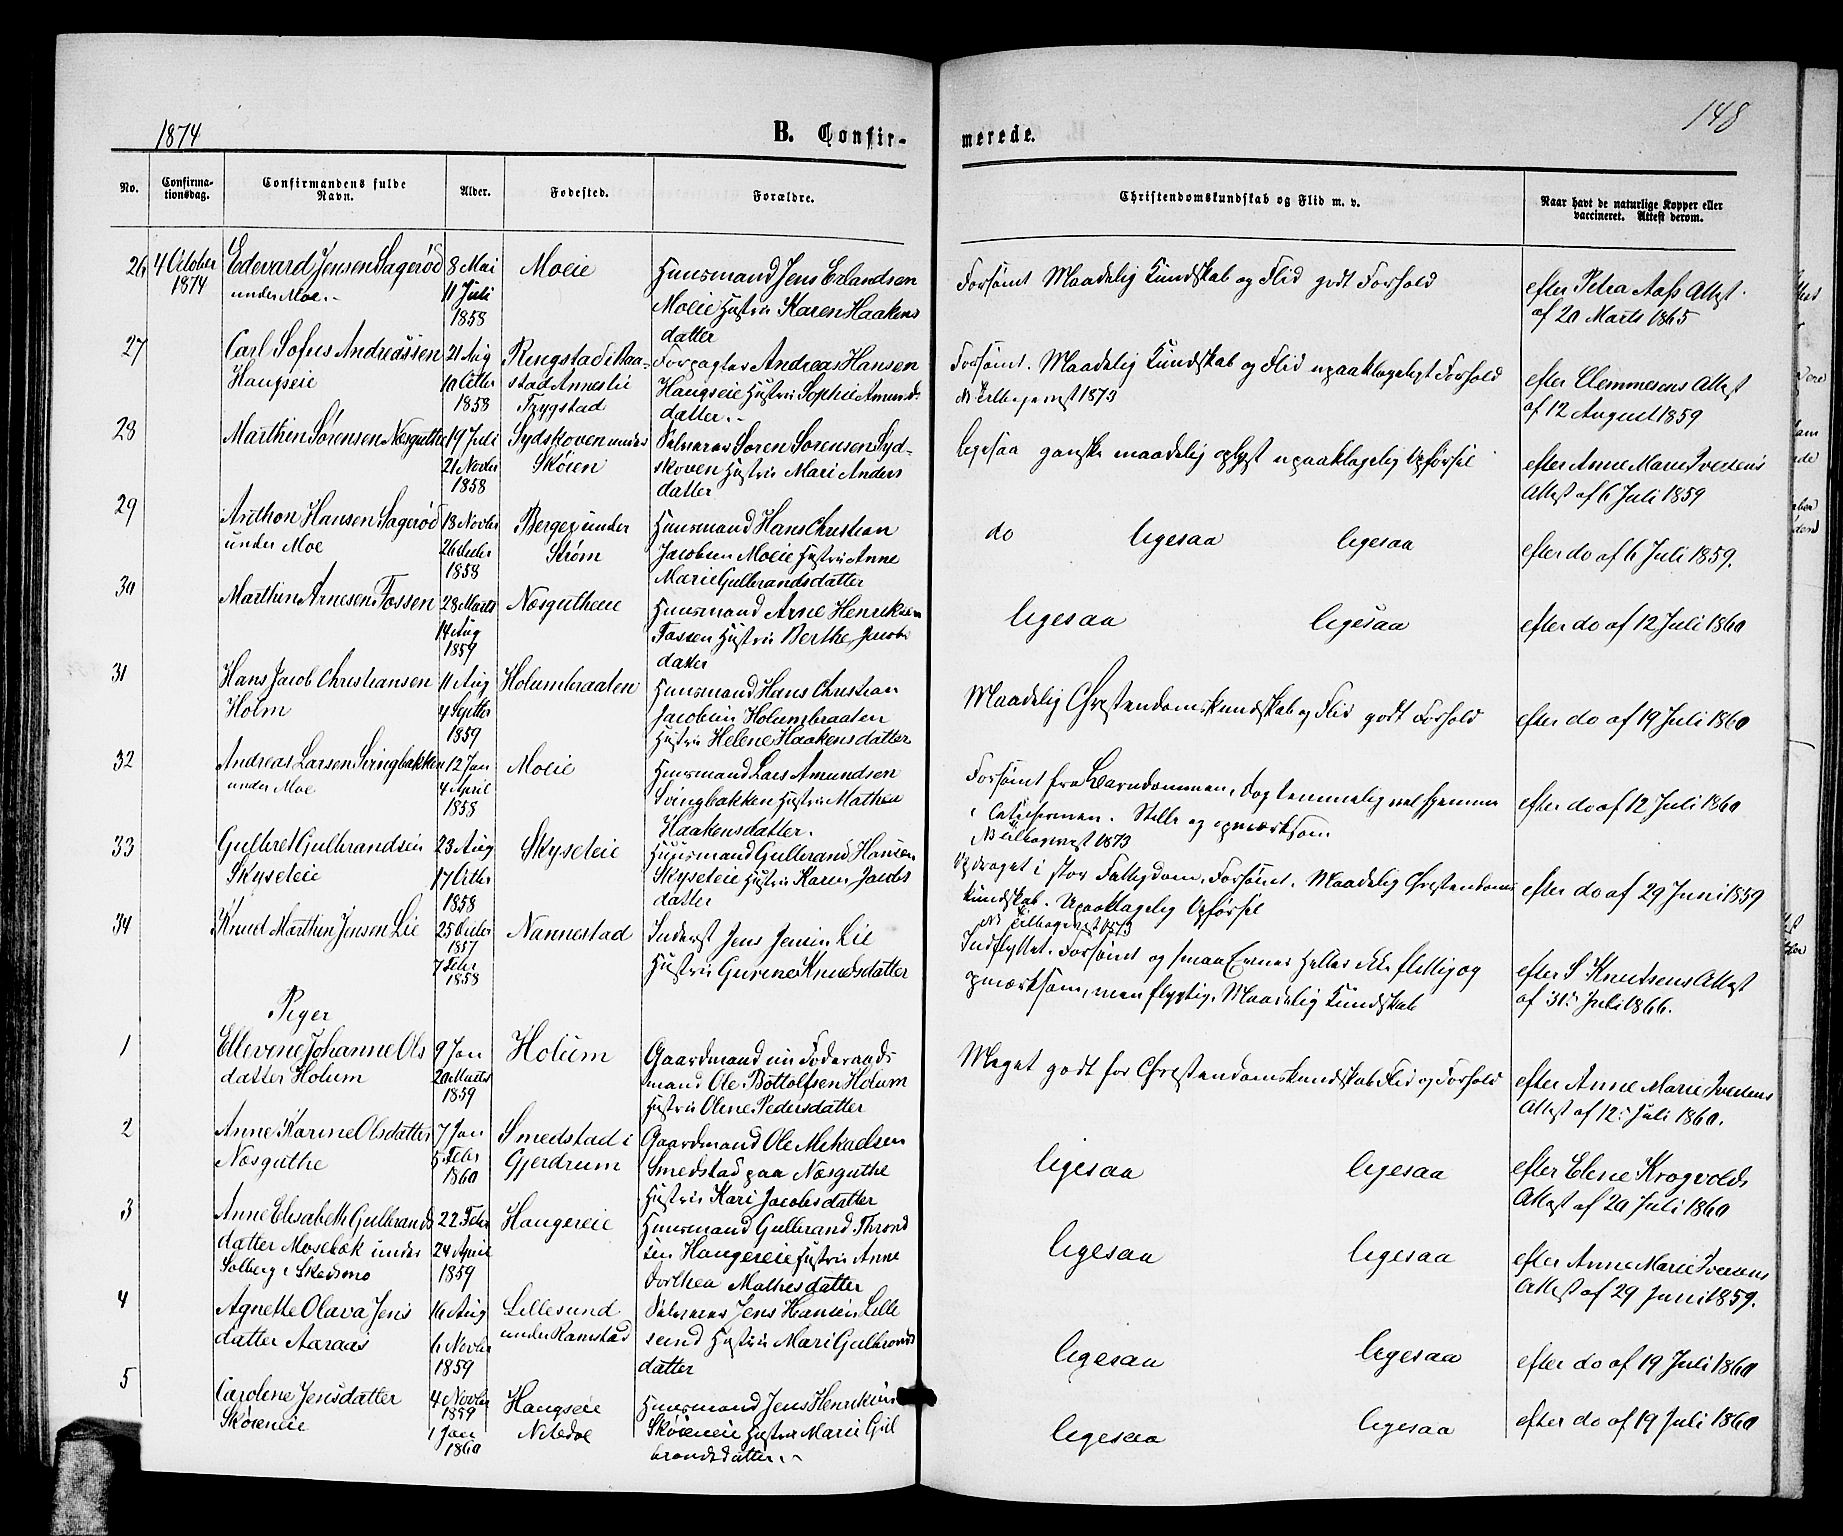 1874
B. Confirmerede.
148
No.
Confirmationsdag.
Confirmandens fulde Navn.
Alder.
Fødested.
Forældre.
Christendomskundskab og Flid m. v.
Naar havt de naturlige Kopper eller vaccineret. Attest derom.
26 4 October 1874 Edevard Jensen Sagerød under Moe 8 Mai 11 Juli 1858 Moeie Huusmand Jens Erlandsen Moeie Hustru Karen Haakensdatter
Forsømt Maadelig Kundskab og Flid godt Forhold
efter Petra Aass Attest af 20 Marts 1865
27 Carl Sofus Andreassen Haugseie 21 Aug 10 Octbr 1858 Ringstad i Baastad Annexlie Trygstad Forpagter Andreas Hansen Haugseie Hustru Sophie Amundsdatter
Forsømt. Maadelig Kundskab og Flid upaaklageligt Forhold
NB tilbagevist 1873
efter Clemmesens Attest af 12 August 1859
28 Marthin Sørensen Næsguthe 19 Juli 21 Novbr 1858 Sydskoven under Skøien Selveier Søren Sørensen Sydskoven Hustru Mari Andersdatter
ligesaa ganske maadelig oplyst upaaklagelig Opførsel
efter Anne Marie Ivedens Attest af 6 Juli 1859
29 Anthon Hansen Sagerød under Moe 18 Novbr 26 Decbr 1858 Berger under Strøm Huusmand Hans Christian Jacobsen Moeie Hustru Anne Marie Gulbrandsdatter
do ligesaa ligesaa
efter do af 6 Juli 1859.
30 Marthin Arnesen Fossen 28 Marts 14 Aug 1859 Næsgutheie Huusmand Arne Henriksen Fossen Hustru Berthe Jacobsdatter
ligesaa ligesaa
efter do af 12 Juli 1860
31 Hans Jacob Christiansen Holm 11 Aug 4 Septbr 1859 Holumbraaten Huusmand Hans Christian Jacobsen Holumbraaten Hustru Helene Haakensdatter
Maadelig Christendomskundskab og Flid godt Forhold
efter do af 19 Juli 1860
32 Andreas Larsen Svingbakken under Moe 12 Jan 4 April 1858 Moeie Huusmand Lars Amundsen Svingbakken Hustru Mathea Haakensdatter.
Forsømt fra Barndommen, dog temmelig vel hjemme i Catechismen. Stille og opmærksom
NB tilbagevist 1873
efter do af 12 Juli 1860
33 Gulbret Gulbrandsen Skyseteie 23 Aug 17 Octbr 1858 Skyseteie Huusmand Gulbrand Hansen Skyseteie Hustru Karen Jacobsdatter
Opdraget i stor Fattigdom. Forsømt. Maadelig Christendomskundskab. Upaaklagelig Opførsel
NB tilbagevist 1873
efter do af 29 Juni 1859
34 Knud Marthin Jensen Lie 25 Decbr 1857 7 Febr 1858 Nannestad Inderst Jens Jensen Lie Hustru Gurine Knudsdatter
Indflyttet. Forsømt og smaa Evner heller ikke flittig og opmærksom, men flygtig. Maadelig Kundskab
efter S Knutsens Attest af 31: Juli 1866.
Piger
1 Ellevine Johanne Olsdatter Holum 9 Jan 20 Marts 1859 Holum Gaardmand nu Føderaadsmand Ole Bottolfsen Holum Hustru Olene Pedersdatter
Meget godt for Christendomskundskab Flid og Forhold
efter Anne Marie Ivedens Attest af 12: Juli 1860.
2 Anne Karine Olsdatter Næsguthe 7 Jan 5 Febr 1860 Smedstad i Gjerdrum Gaardmand Ole Mikaelsen Smedstad paa Næsguthe Hustru Kari Jacobsdatter
ligesaa ligesaa
efter Elene Krogvolds Attest af 20 Juli 1860
3 Anne Elisabeth Gulbrandsdatter Mosebæk under Solberg i Skedsmo 22 Febr 24 April 1859 Haugereie Huusmand Gulbrand Throndsen Haugereie Hustru Anne Dorthea Mathisdatter
ligesaa ligesaa
efter Anne Marie Ivedens Attest af 29 Juni 1859.
4 Agnette Olava Jensdatter Aaraas 16 Aug 6 Novbr 1859 Lillesund under Ramstad Selveier Jens Hansen Lillesund Hustru Mari Gulbrandsdatter
ligesaa ligesaa
efter do af 19 Juli 1860
5 Caroline Jensdatter Skøieneie 4 Novbr 1859 1 Jan 1860 Haugseie Nitedal Huusmand Jens Henriksen Skøieneie Hustru Marie Gulbrandsdatter.
ligesaa ligesaa
efter do af 19 Juli 1860